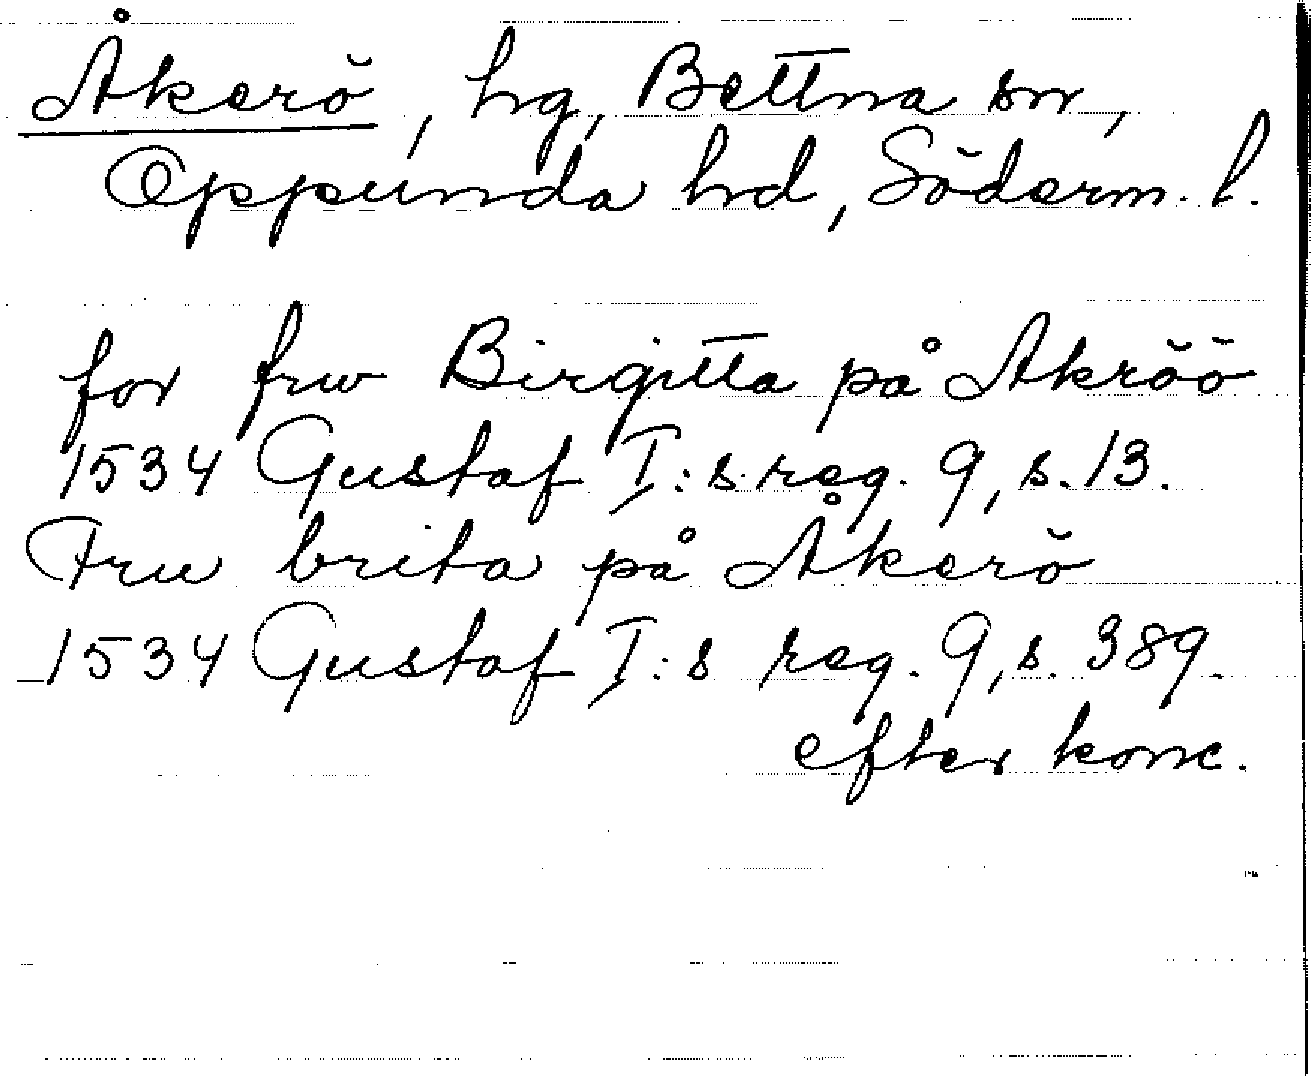 Åkerö, hg, Bettna sn,
Oppunda hd, Söderm. l.
for frw Birgitta på Akröö
1534 Gustaf I:s reg. 9, s. 13.
Fru brita på Åkerö
1534 Gustaf I:s reg. 9, s. 389.
efter konc.